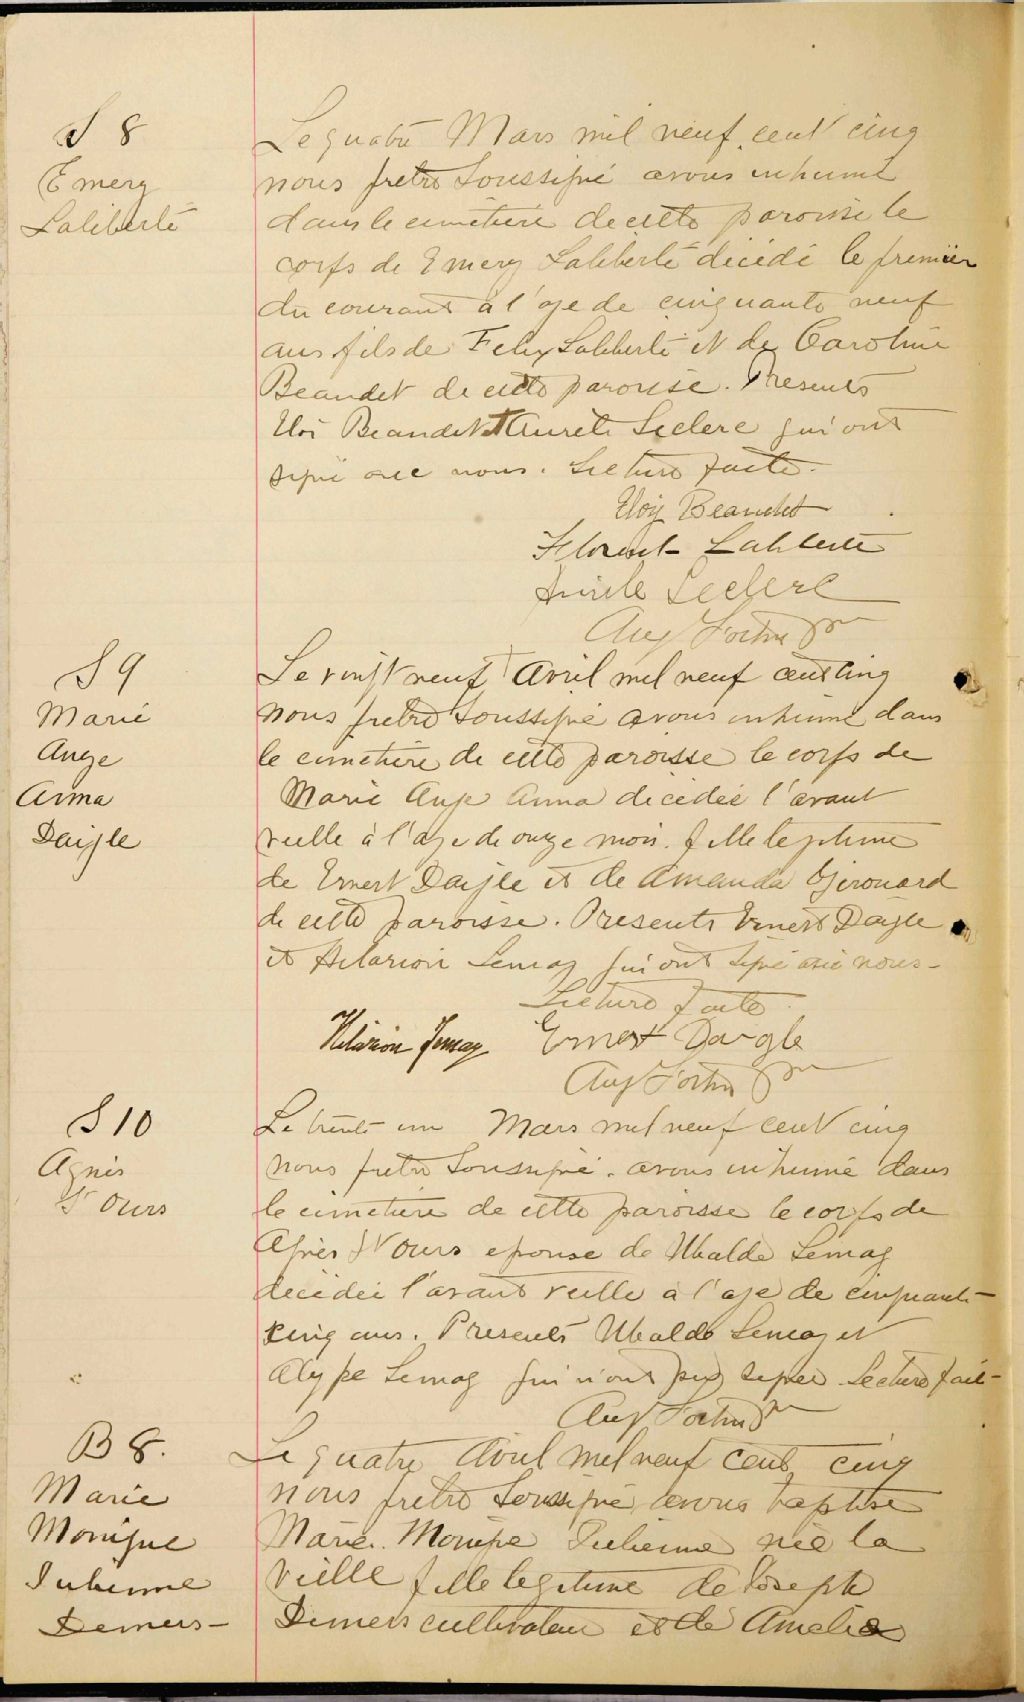 S 8
Emery
Laliberté
Le quatre Mars mil neuf cent cinq
nous prêtre soussigné avons inhumé
dans le cimetière de cette paroisse le
corps de Emery Laliberté décédé le premier
du courant à l'age de cinquante neuf
ans fils de Felix Laliberté et de Caroline
Beaudet de cette paroisse. Presents
Eloi Beaudet + Aurèle Leclerc qui ont
signé avec nous. Lecture faite.
Eloij Beaudet
Florent Laliberté
Aurèle Leclerc
Aug Fortin ptr
S 9
Marie
Ange
Anna
Daigle
Le vingt neuf Avril mil neuf cent cinq
nous prêtre soussigné avons inhumé dans
le cimetière de cette paroisse le corps de
Marie Ange Anna décédée l'avant
veille à l'age de onze mois. fille legitime
de Ernest Daigle et de Amanda Girouard
de cette paroisse. Presents Ernest Daigle
et Hilarion Lemay qui ont signé avec nous -
Lecture faite.
Hilarion Lemay Ernest Daigle
Aug Fortin ptr
S 10
Agnès
St Ours
Le trente un Mars mil neuf cent cinq
nous prêtre soussigné. avons inhumé dans
le cimetière de cette paroisse le corps de
Agnès St Ours epouse de Ubalde Lemay
décédée l'avant veille à l'age de cinquante-
cinq ans. Presents Ubalde Lemay et
Lemay qui n'ont pu signer. Lecture fait-
Aug Fortin ptr
B 8.
Marie
Monique
Julienne
Demers -
Le quatre Avril mil neuf cent cinq
nous prêtre soussigné avons baptisé
Marie. Monique Julienne née la
veille fille legitime de Joseph
Demers cultivateur et de Amelia